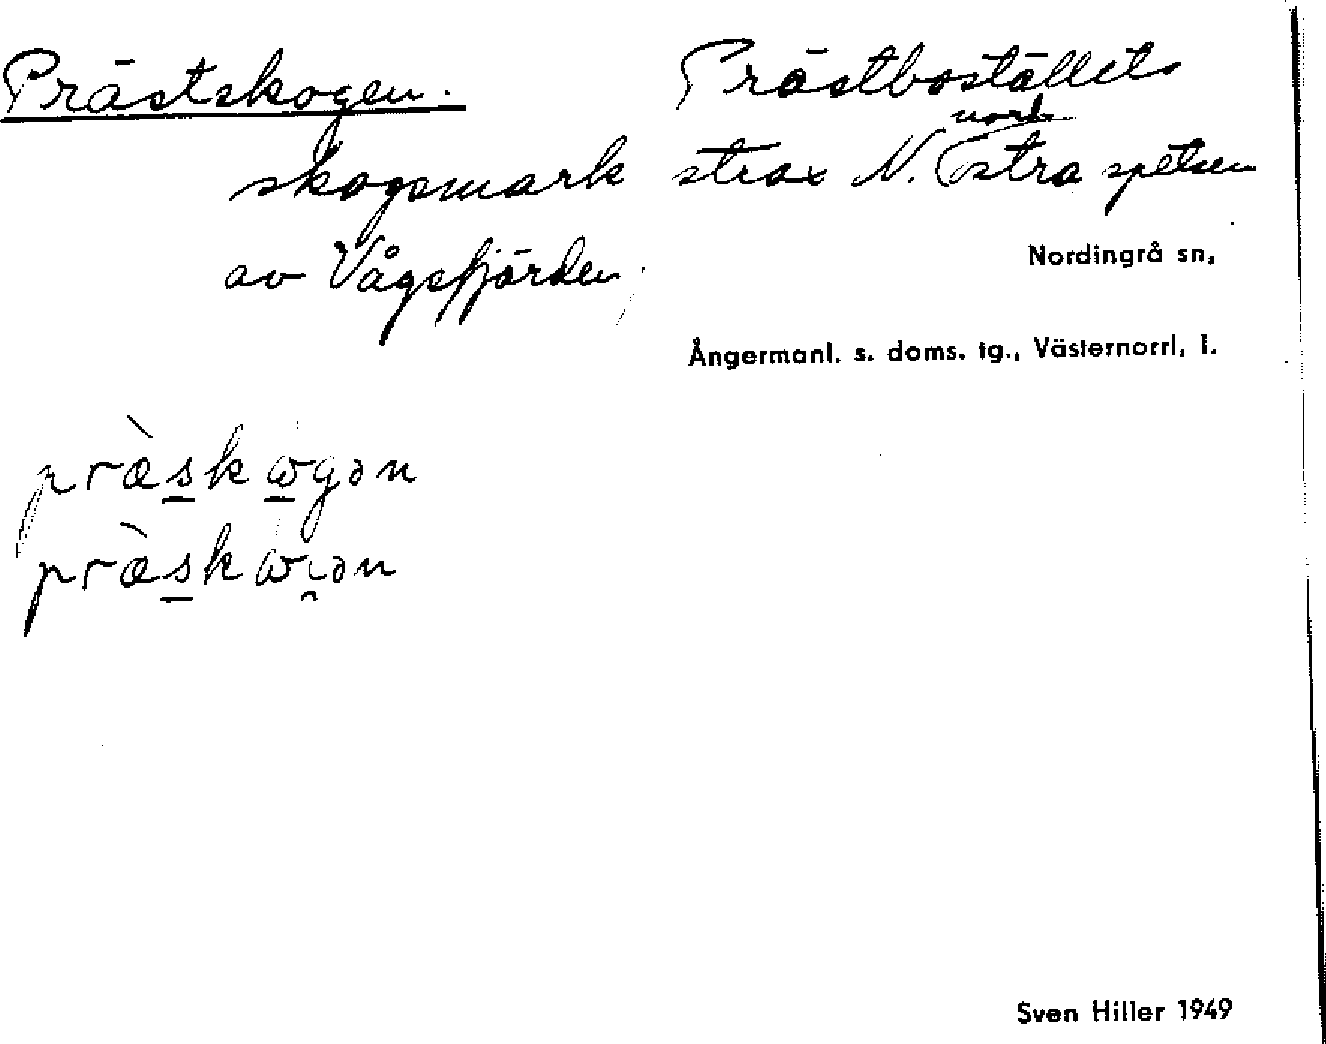 Prästskogen. Prästboställets
nord
skogsmark strax N. Östra spetsen
av Vågsfjärden,
Nordingrå sn,
Ångermanl. s. doms. tg., Västernorrl. l.
præ̀skωgən
præ̀skωi̯ən
Sven Hiller 1949